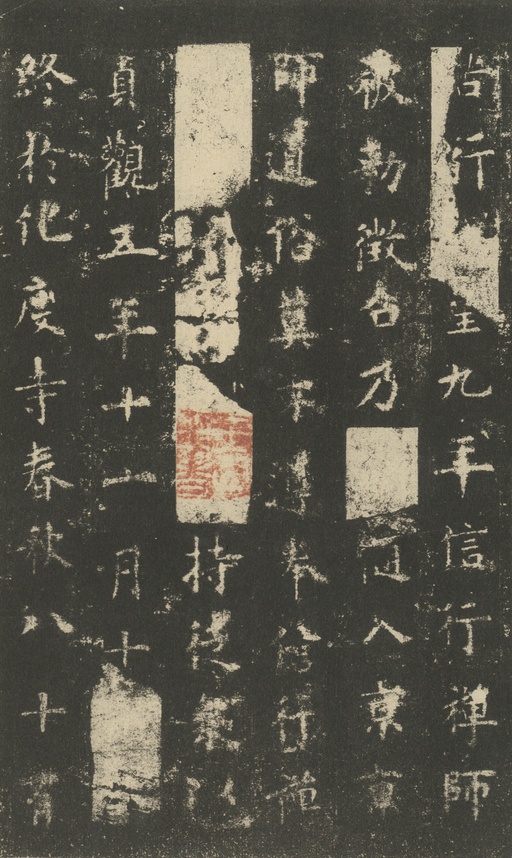 尚行 至九年信行禪師
被勅徵召乃 冠入京京
師道俗莫不遵奉信行禪
持徒衆以
貞觀五年十一月十
終於化度寺春秋八十有